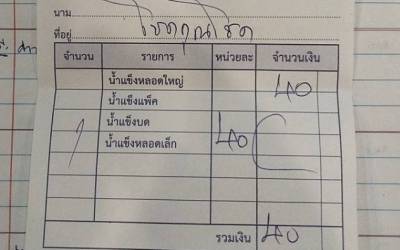 นาม
ที่อยู่
จำนวน รายการ หน่วยละ จำนวนเงิน
น้ำแข็งหลอดใหญ่ 40
น้ำแข็งแพ็ค
น้ำแข็งบด
1 น้ำแข็งหลอดเล็ก 40
รวมเงิน 40